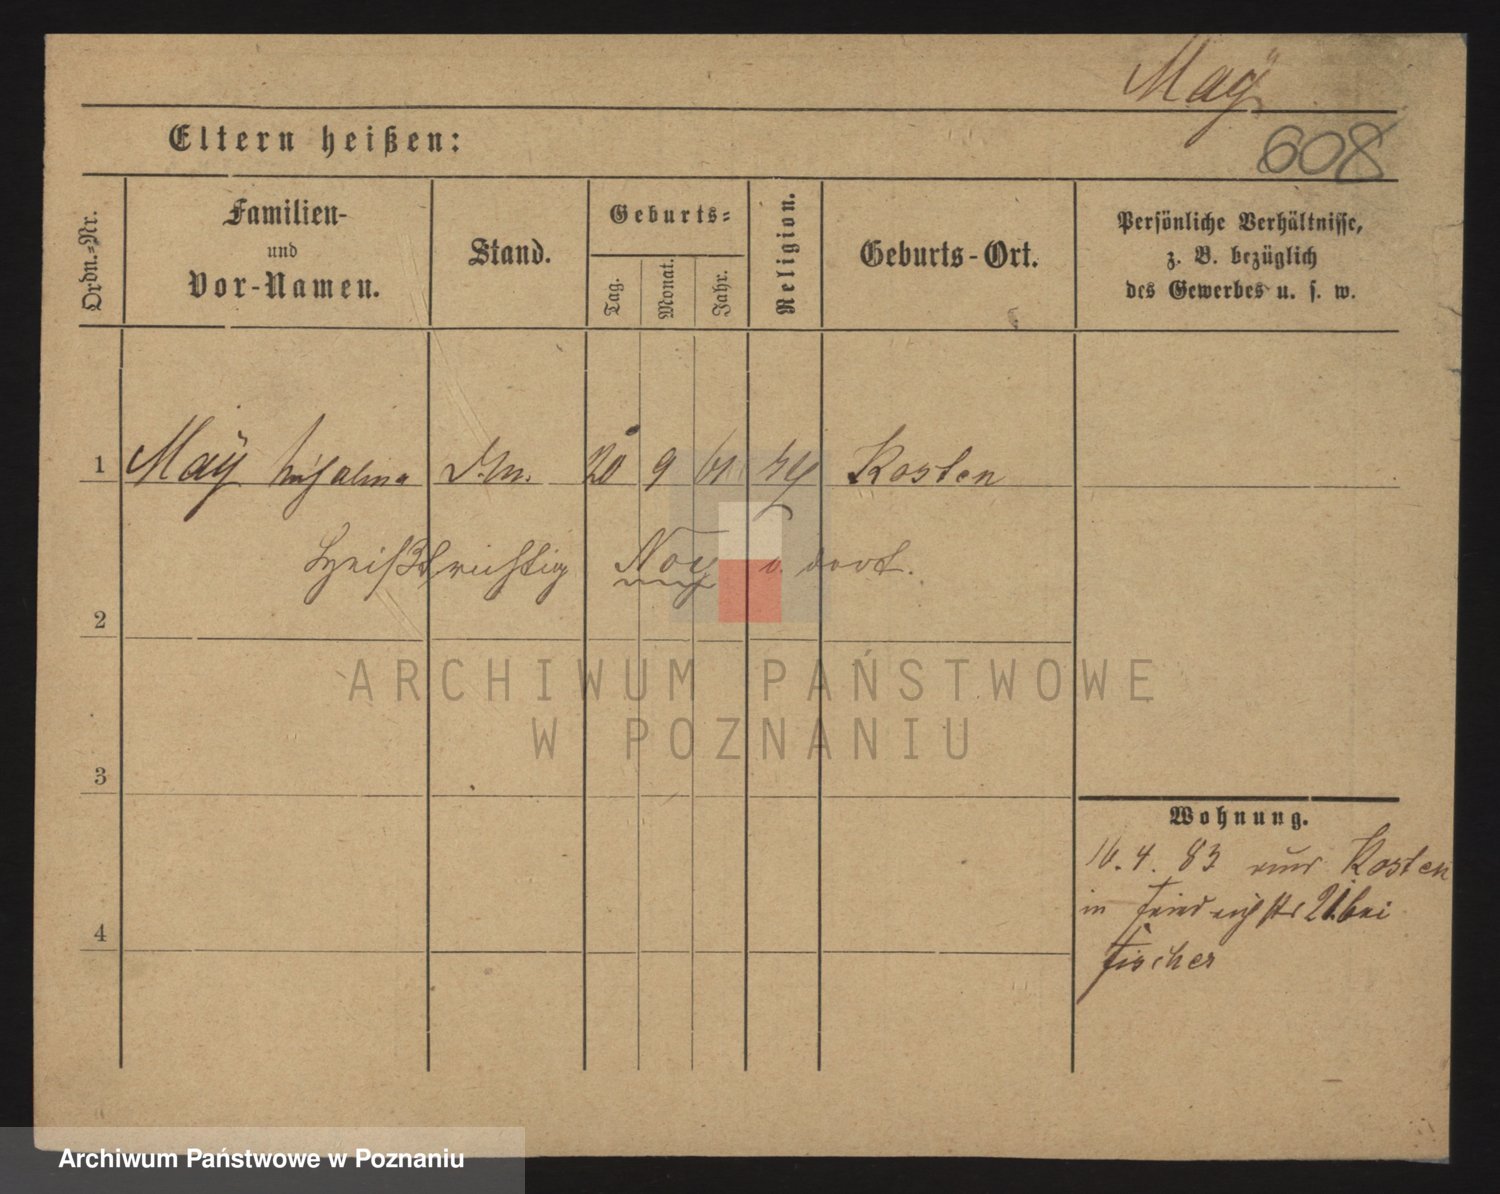 Maÿ
608
Eltern heißen:
Ordn.-Nr.
Familien-
und
Vor-Namen.
Stand.
Geburts-
Tag.
Monat.
Jahr.
Religion.
Geburts-Ort.
Persönliche Verhältnisse,
z. B. bezüglich
des Gewerbes u. s. w.
1 Maÿ D.M. 20 9 61 Kosten
Heißt richtig Noy dort.
2
ARCHIWUM PAŃSTWOWE
W POZNANIU
3
4
Wohnung.
16. 4. 83 Kosten
in Friedrichstr 21 bei
Fischer
Archiwum Państwowe w Poznaniu